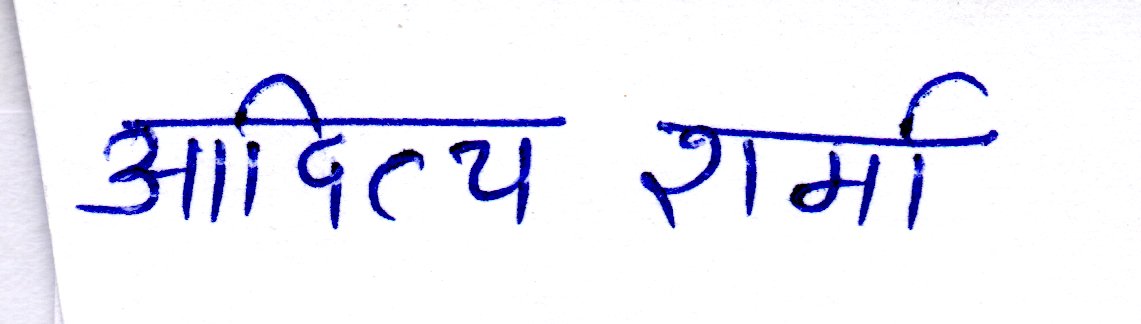 आदित्य शर्मा